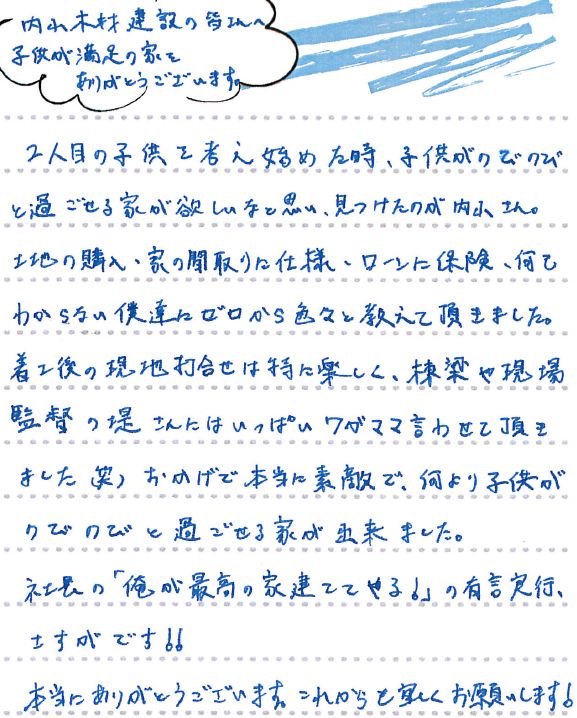 内山木材建設の皆さんへ
子供が満足の家を
ありがとうございます。
2人目の子供を考え始めた時、子供がのびのび
と過ごせる家が欲しいなと思い、見つけたのが内山さん。
土地の購入、家の間取りに仕様、ローンに保険、何も
わからない僕達にゼロから色々と教えて頂きました。
着工後の現地打合せは特に楽しく、棟梁や現場
監督の堤さんにはいっぱいワガママ言わせて頂き
ました(笑) おかげで本当に素敵で、何より子供が
のびのびと過ごせる家が出来ました。
社長の「俺が最高の家建ててやる!」の有言実行、
さすがです!!
本当にありがとうございます。これからも宜しくお願いします!